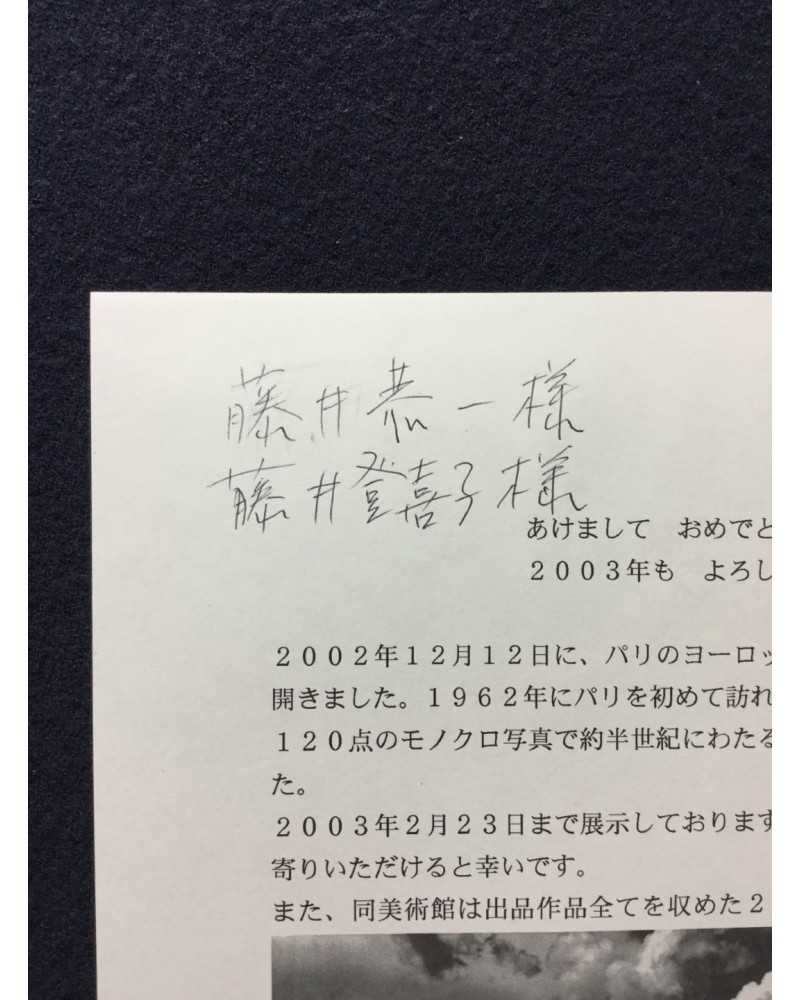 藤井恭一様
藤井登喜子様
あけまして　おめでと
２００３年も　よろし
２００２年１２月１２日に、パリのヨーロッ
開きました。１９６２年にパリを初めて訪れ
１２０点のモノクロ写真で約半世紀にわたる
た。
２００３年２月２３日まで展示しております
寄りいただけると幸いです。
また、同美術館は出品作品全てを収めた２